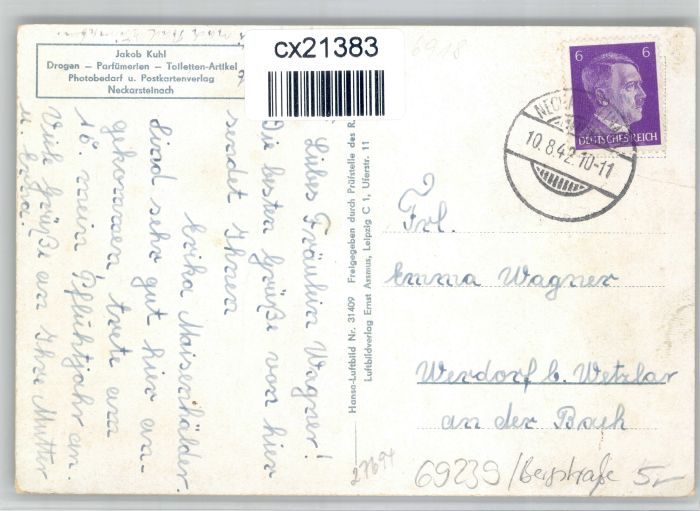 Jakob Kuhl
Drogen — Parfümerien — Toiletten-Artikel
Photobedarf u. Postkartenverlag
Neckarsteinach
cx21383
6918
6 6
DEUTSCHES REICH
10.8.42.10-11
Liebes Fräulein Wagner!
Die besten Grüße von hier
sendet Ihnen
Erika Maisenhälder.
Sind sehr gut hier an-
gekommen trete am
16. mein Pflichtjahr an.
Viele Grüße an Ihre Mutter
u. Erna.
Hansa-Luftbild Nr. 31409 Freigegeben durch Prüfstelle des R.
Luftbildverlag Ernst Assmus, Leipzig C 1, Uferstr. 11
Frl.
Emma Wagner
Werdorf b. Wetzlar
an der Bach
27694
69239/Bergstraße 5,-